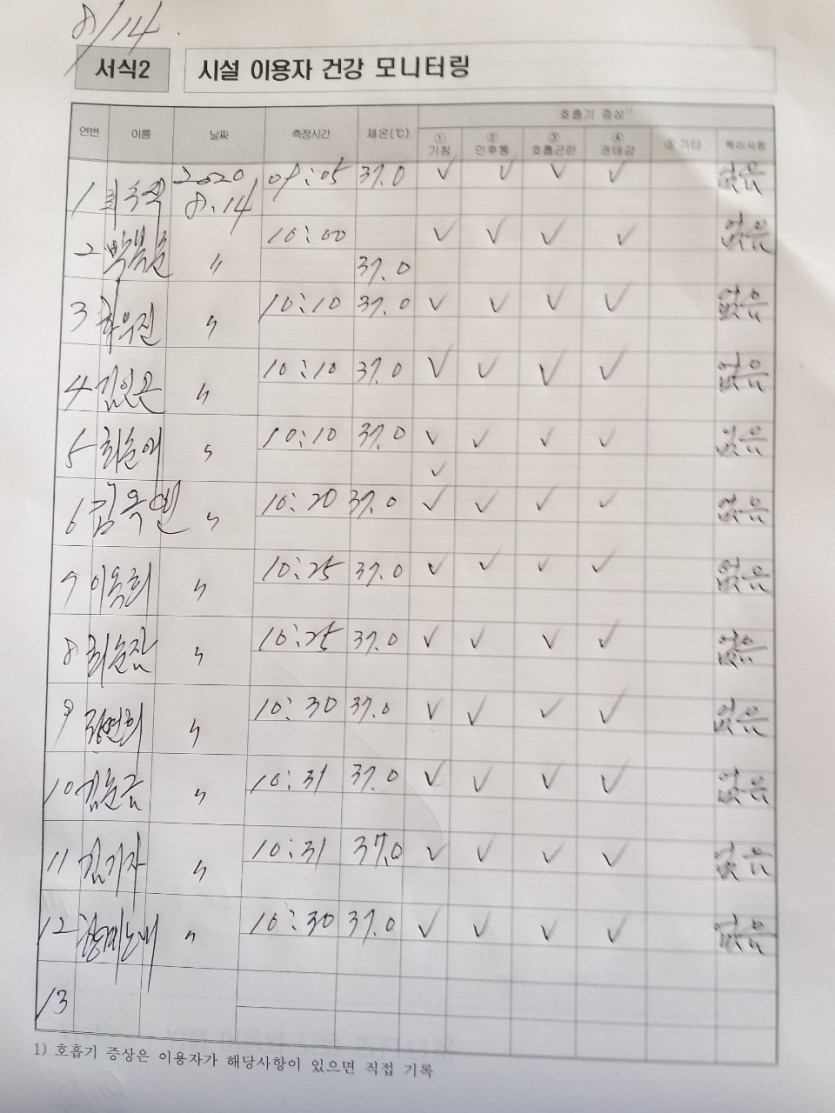 8/14.
서식2 시설 이용자 건강 모니터링
연번 이름 날짜 측정시간 체온(℃) 호흡기 증상1)
① 기침 ② 인후통 ③ 호흡곤란 ④ 권태감 ⑤기타 특이사항
1 2020 8.14 09:05 37.0 ✓ ✓ ✓ ✓ 없음
2 〃 10:00 37.0 ✓ ✓ ✓ ✓ 없음
3 〃 10:10 37.0 ✓ ✓ ✓ ✓ 없음
4 〃 10:10 37.0 ✓ ✓ ✓ ✓ 없음
5 〃 10:10 37.0 ✓ ✓ ✓ ✓ 없음
✓
6 〃 10:20 37.0 ✓ ✓ ✓ ✓ 없음
7 이옥희 〃 10:25 37.0 ✓ ✓ ✓ ✓ 없음
8 〃 10:25 37.0 ✓ ✓ ✓ ✓ 없음
9 〃 10:30 37.0 ✓ ✓ ✓ ✓ 없음
10 〃 10:31 37.0 ✓ ✓ ✓ ✓ 없음
11 김기자 〃 10:31 37.0 ✓ ✓ ✓ ✓ 없음
12 〃 10:30 37.0 ✓ ✓ ✓ ✓ 없음
13
1) 호흡기 증상은 이용자가 해당사항이 있으면 직접 기록